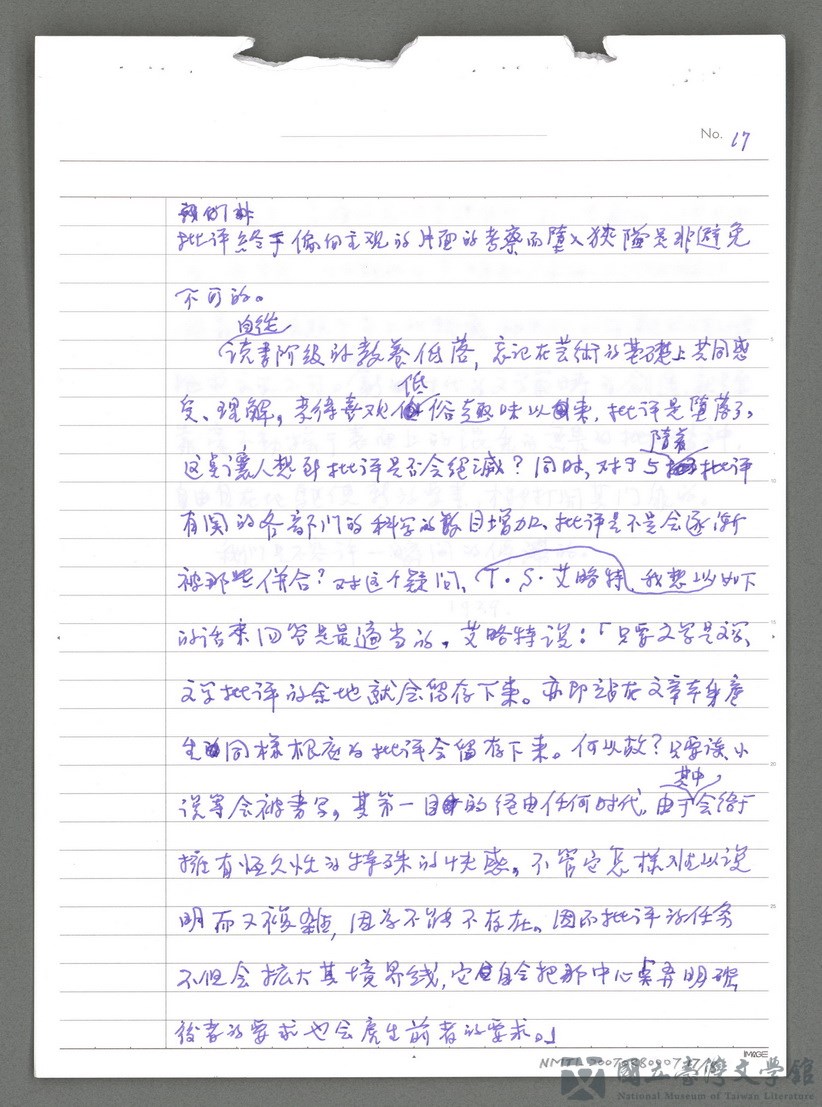 No. 17
批评終于偏向主观的片面的考察而墮入狹隘是非避免
不可的。
自從
读書阶级的教养低落，忘记在芸術的基礎上共同感
低
受、理解，耒待喜观俗趣味以來，批评是墮落了，
隨着
这点讓人想到批评是否会绝滅？同时，对于与批评
有関的各部门的科学的数目增加，批评是不是会逐渐
被那些併合？对这个疑问，T·S·艾略特，我想以如下
的话來回答是最適当的，艾略特说：「只要文学是文学，
文学批评的余地就会留存下來。亦即站在文章本身產
生同样根底的批评会留存下來。何以故？只要诗、小
其中
说等会被書写，其第一目的经由任何时代，由于会给予
擁有恆久性的特殊的快感，不管它怎樣难以说
明而又複雜，因为不能不存在。因而批评的任务
不但会拡大其境界线，它自会把那中心弄明確，
後者的要求也会產生前者的要求。」
IMAGE
國立臺灣文學館
National Museum of Taiwan Literature